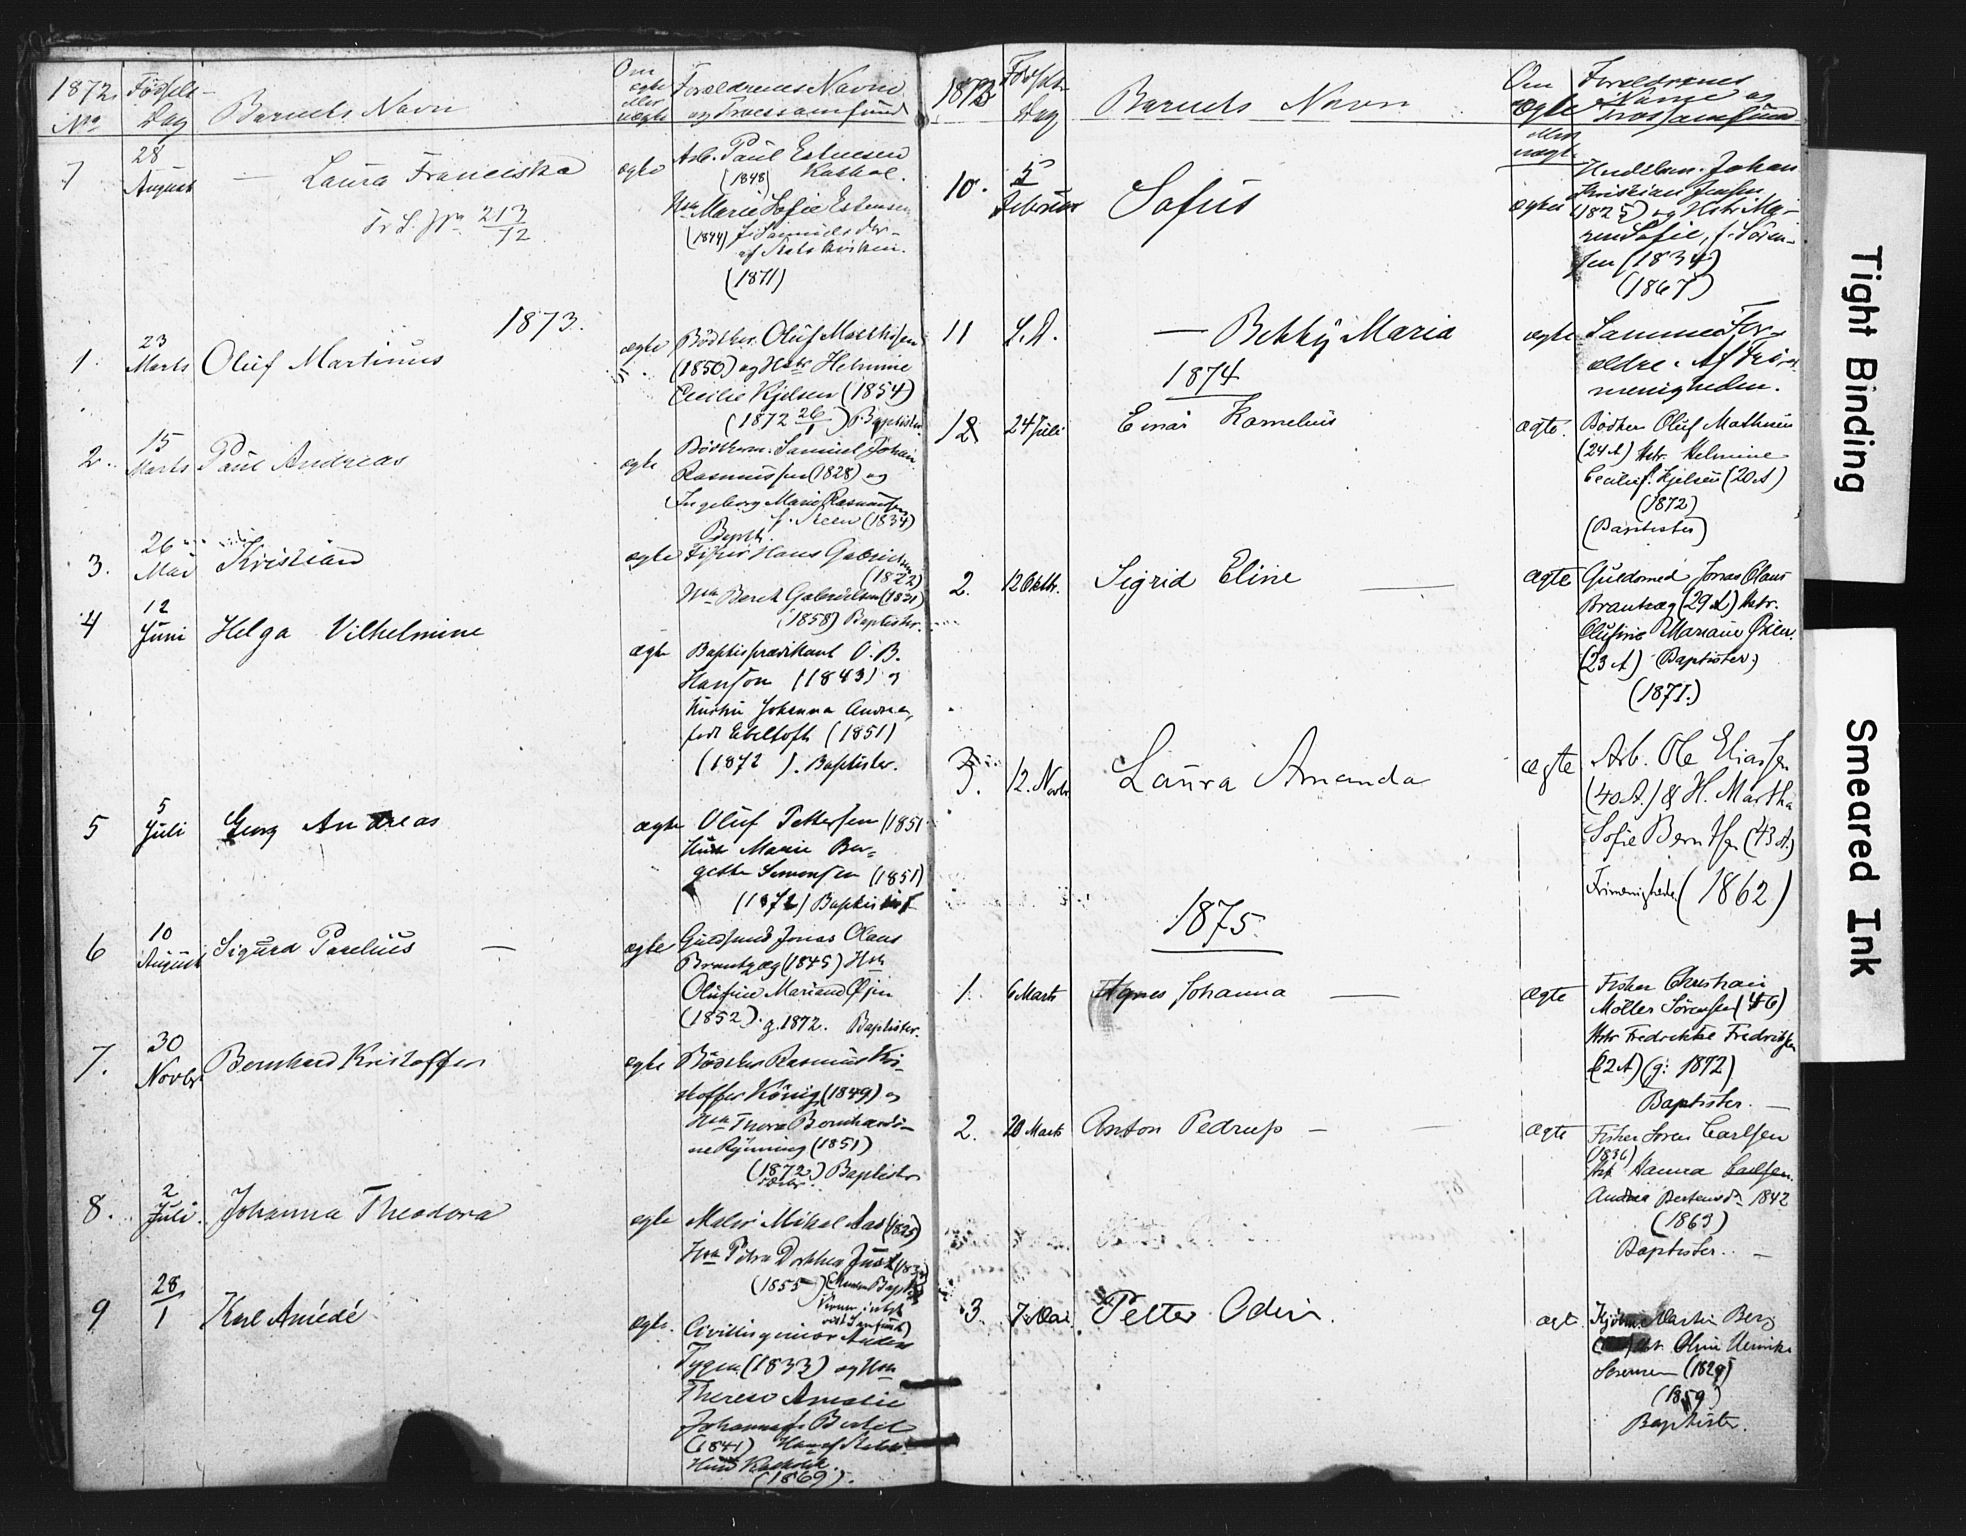 1872 Fødsels-
No Dag Barnets Navn
Om ægte eller uægte
Forældrenes Navne
og Troessamfund
7 28 August — Laura Franciska ægte
Arb. Paul Estensen
(1848) Kathol.
Hstr Marie Sofie Estensen
(1844) f. Samuelsdtr
af Statskirken.
(1871)
1873.
1. 23 Marts Oluf Martinus ægte
Bødker Oluf Mathisen
(1850) og Hstr Helmine
Cecilie Kjelsen (1854)
(1872 26/1) Baptister
2. 15 Marts Paul Andreas ægte
Bødkerm. Samuel Johan
Rasmussen (1828) og
Ingeborg Marie Rasmussen
f. Steen (1834)
Baptk.
3. 26 Mai Kristian ægte
Fisker Hans Gabrielsen
(1822)
Hstr Berth Gabrielsen (1831)
(1858) Baptister.
4 12 Juni Helga Vilhelmine ægte
Baptistprædikant O. B.
Hanson (1843) og
Hustru Johanna Andrea,
født Ebeltoft (1851)
(1872 ). Baptister.
5 5 Juli Georg Andreas ægte
Oluf Pettersen (1851
Hustr Marie Ber-
gette Simonsen (1851)
(1872) Baptist
6 10 August Sigurd Paulius — ægte
Guldsmed Jonas Olaus
Brantzæg (1845) Hstr
Olufine Mariane Øien
(1852). g. 1872. Baptister.
7. 30 Novbr Bernhard Kristoffer ægte
Bødker Rasmus Kri-
stoffer König (1849) og
Hstr Thora Bernhardi-
ne Rynning (1851)
(1872) Baptister
8. 2 Juli Johanna Theodora ægte
Maler Mikal Aas (1825)
Hstr Petra Dorthea Just
(1855)
9 28/1 Karl Amédé ægte.
Civilingeniør Anders
Tygen (1833) og Hstr
Therese Amalie
Johannes f. Bertel
(1841) Han af Statsk.
Hustr Katholik.
(1869).
1873 Fødsels Dag Barnets Navn
Om ægte eller uægte
Forældrenes
Navne og
Trossamfund
10. 5 Februar Sofus ægte
Handelsm. Johan
Kristian Jensen
(1825) og Hstr Ma-
ren Sofie, f. Søren-
sen (1834)
(1867)
11 S. D. — Bekky Maria ægte
Samme For-
ældre. Af Fri-
menigheden.
1874
1 24 Juli Einar Kornelius ægte.
Bødker Oluf Mathisen
(24 A) Hstr. Helmine
Cecilie f. Kjelsen (20 A)
(1872)
(Baptister)
2. 12 Oktbr. Sigrid Eline — ægte
Guldsmed Jonas Olaus
Brantzæg (29 A) Hstr.
Olufine Mariane Øien.
(23 A) Baptister)
(1871.)
3. 12. Novbr Laura Amanda ægte
Arb. Ole Eliassen
(40 A.) & H. Martha
Sofie Berntsen (43 A.)
Frimenighede (1862)
1875.
1. 6 Marts Agnes Johanna — ægte
Fisker Christian
Møller Sørensen (46)
Hstr Fredrikke Fredriksen
(g: 1872)
Baptister. —
2. 20 Marts Anton Pedrup — — ægte
Fisher Soren Carlsen
(1836)
Hst Hanna Carlsen
Andrea Bertensdr 1842
(1863)
Baptister. —
3. 7 Mai. Petter Odin. ægt.
Martin Berg
Hstr. Oline Henrikke
Sørensen (1829)
(1859)
Baptister.
Tight Binding
Smeared Ink